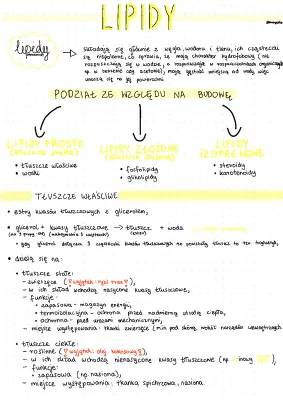 LIPIDY
lipidy
składają się głównie z węgla, wodoru i tlenu, ich cząsteczki
są niepolarne, co sprawia, że mają charakter hydrofobowy (nie
rozpuszczają się w wodzie, rozpuszczalnikach organicznych
np. w benzenie czy acetonie), mają gęstość mniejszą od wody więc
unoszą się na jej powierzchni
PODZIAŁ ZE WZGLĘDU NA BUDOWĘ
LIPIDY PROSTE
• tłuszcze właściwe
• woski
LIPIDY ZŁOŻONE
• fosfolipidy
• glikolipidy
LIPIDY
IZOPRENOWE
• steroidy
• karotenoidy
TŁUSZCZE WŁAŚCIWE
• estry kwasów tłuszczowych z glicerolem,
• glicerol + kwasy tłuszczowe → tłuszcze + woda
• dzielą się na:
• tłuszcze stałe:
– zwierzęce
– w ich skład wchodzą nasycone kwasy tłuszczowe,
– funkcje:
• zapasowa – magazyn energii,
• termoizolacyjna – ochrona przed nadmierną utratą ciepła,
• ochronna – przed urazami mechanicznymi,
– miejsce występowania: tkanki zwierzęce (m.in pod skórą, wokół narządów wewnętrznych
• tłuszcze ciekłe:
– roślinne (wyjątek: olej kokosowy),
– w ich skład wchodzą nienasycone kwasy tłuszczowe
– funkcje:
• zapasowa (np. nasiona),
– miejsce występowania: tkanka spichrzowa, nasiona.